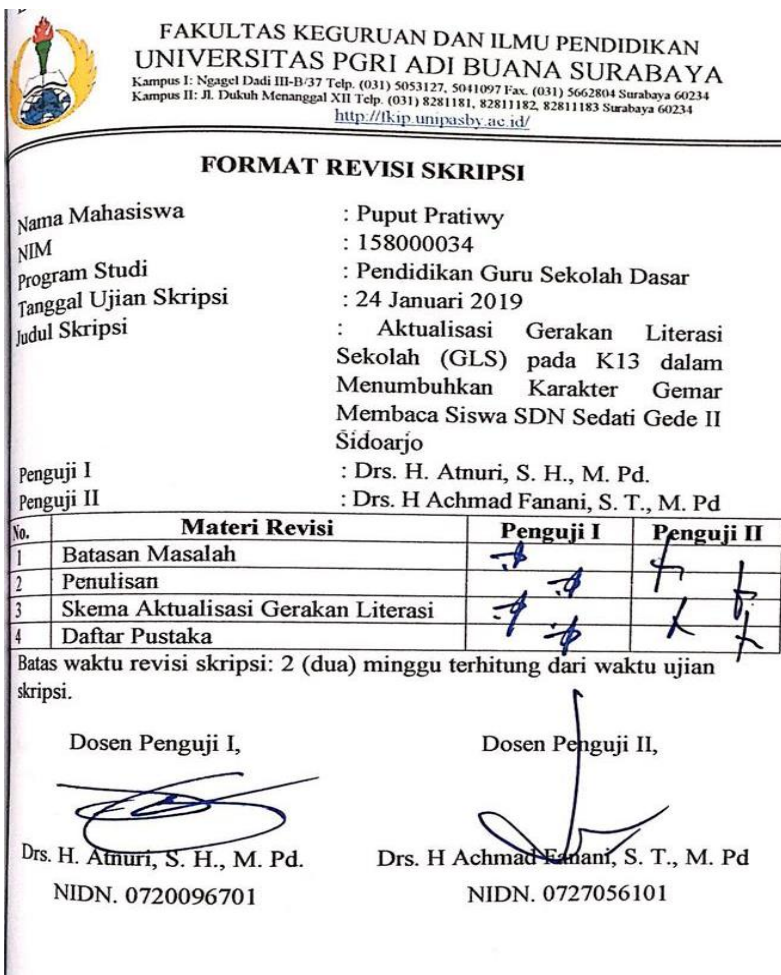 FAKULTAS KEGURUAN DAN ILMU PENDIDIKAN
UNIVERSITAS PGRI ADI BUANA SURABAYA
Kampus I: Ngagel Dadi III-B/37 Telp. (031) 5053127, 5041097 Fax. (031) 5662804 Surabaya 60234
Kampus II: Jl. Dukuh Menanggal XII Telp. (031) 8281181, 82811182, 82811183 Surabaya 60234
http://fkip.unipasby.ac.id/
FORMAT REVISI SKRIPSI
Nama Mahasiswa : Puput Pratiwy
NIM : 158000034
Program Studi : Pendidikan Guru Sekolah Dasar
Tanggal Ujian Skripsi : 24 Januari 2019
Judul Skripsi : Aktualisasi Gerakan Literasi
Sekolah (GLS) pada K13 dalam
Menumbuhkan Karakter Gemar
Membaca Siswa SDN Sedati Gede II
Sidoarjo
Penguji I : Drs. H. Atnuri, S. H., M. Pd.
Penguji II : Drs. H Achmad Fanani, S. T., M. Pd
No. Materi Revisi Penguji I Penguji II
1 Batasan Masalah
2 Penulisan
3 Skema Aktualisasi Gerakan Literasi
4 Daftar Pustaka
Batas waktu revisi skripsi: 2 (dua) minggu terhitung dari waktu ujian
skripsi.
Dosen Penguji I, Dosen Penguji II,
Drs. H. Atnuri, S. H., M. Pd. Drs. H Achmad Fanani, S. T., M. Pd
NIDN. 0720096701 NIDN. 0727056101